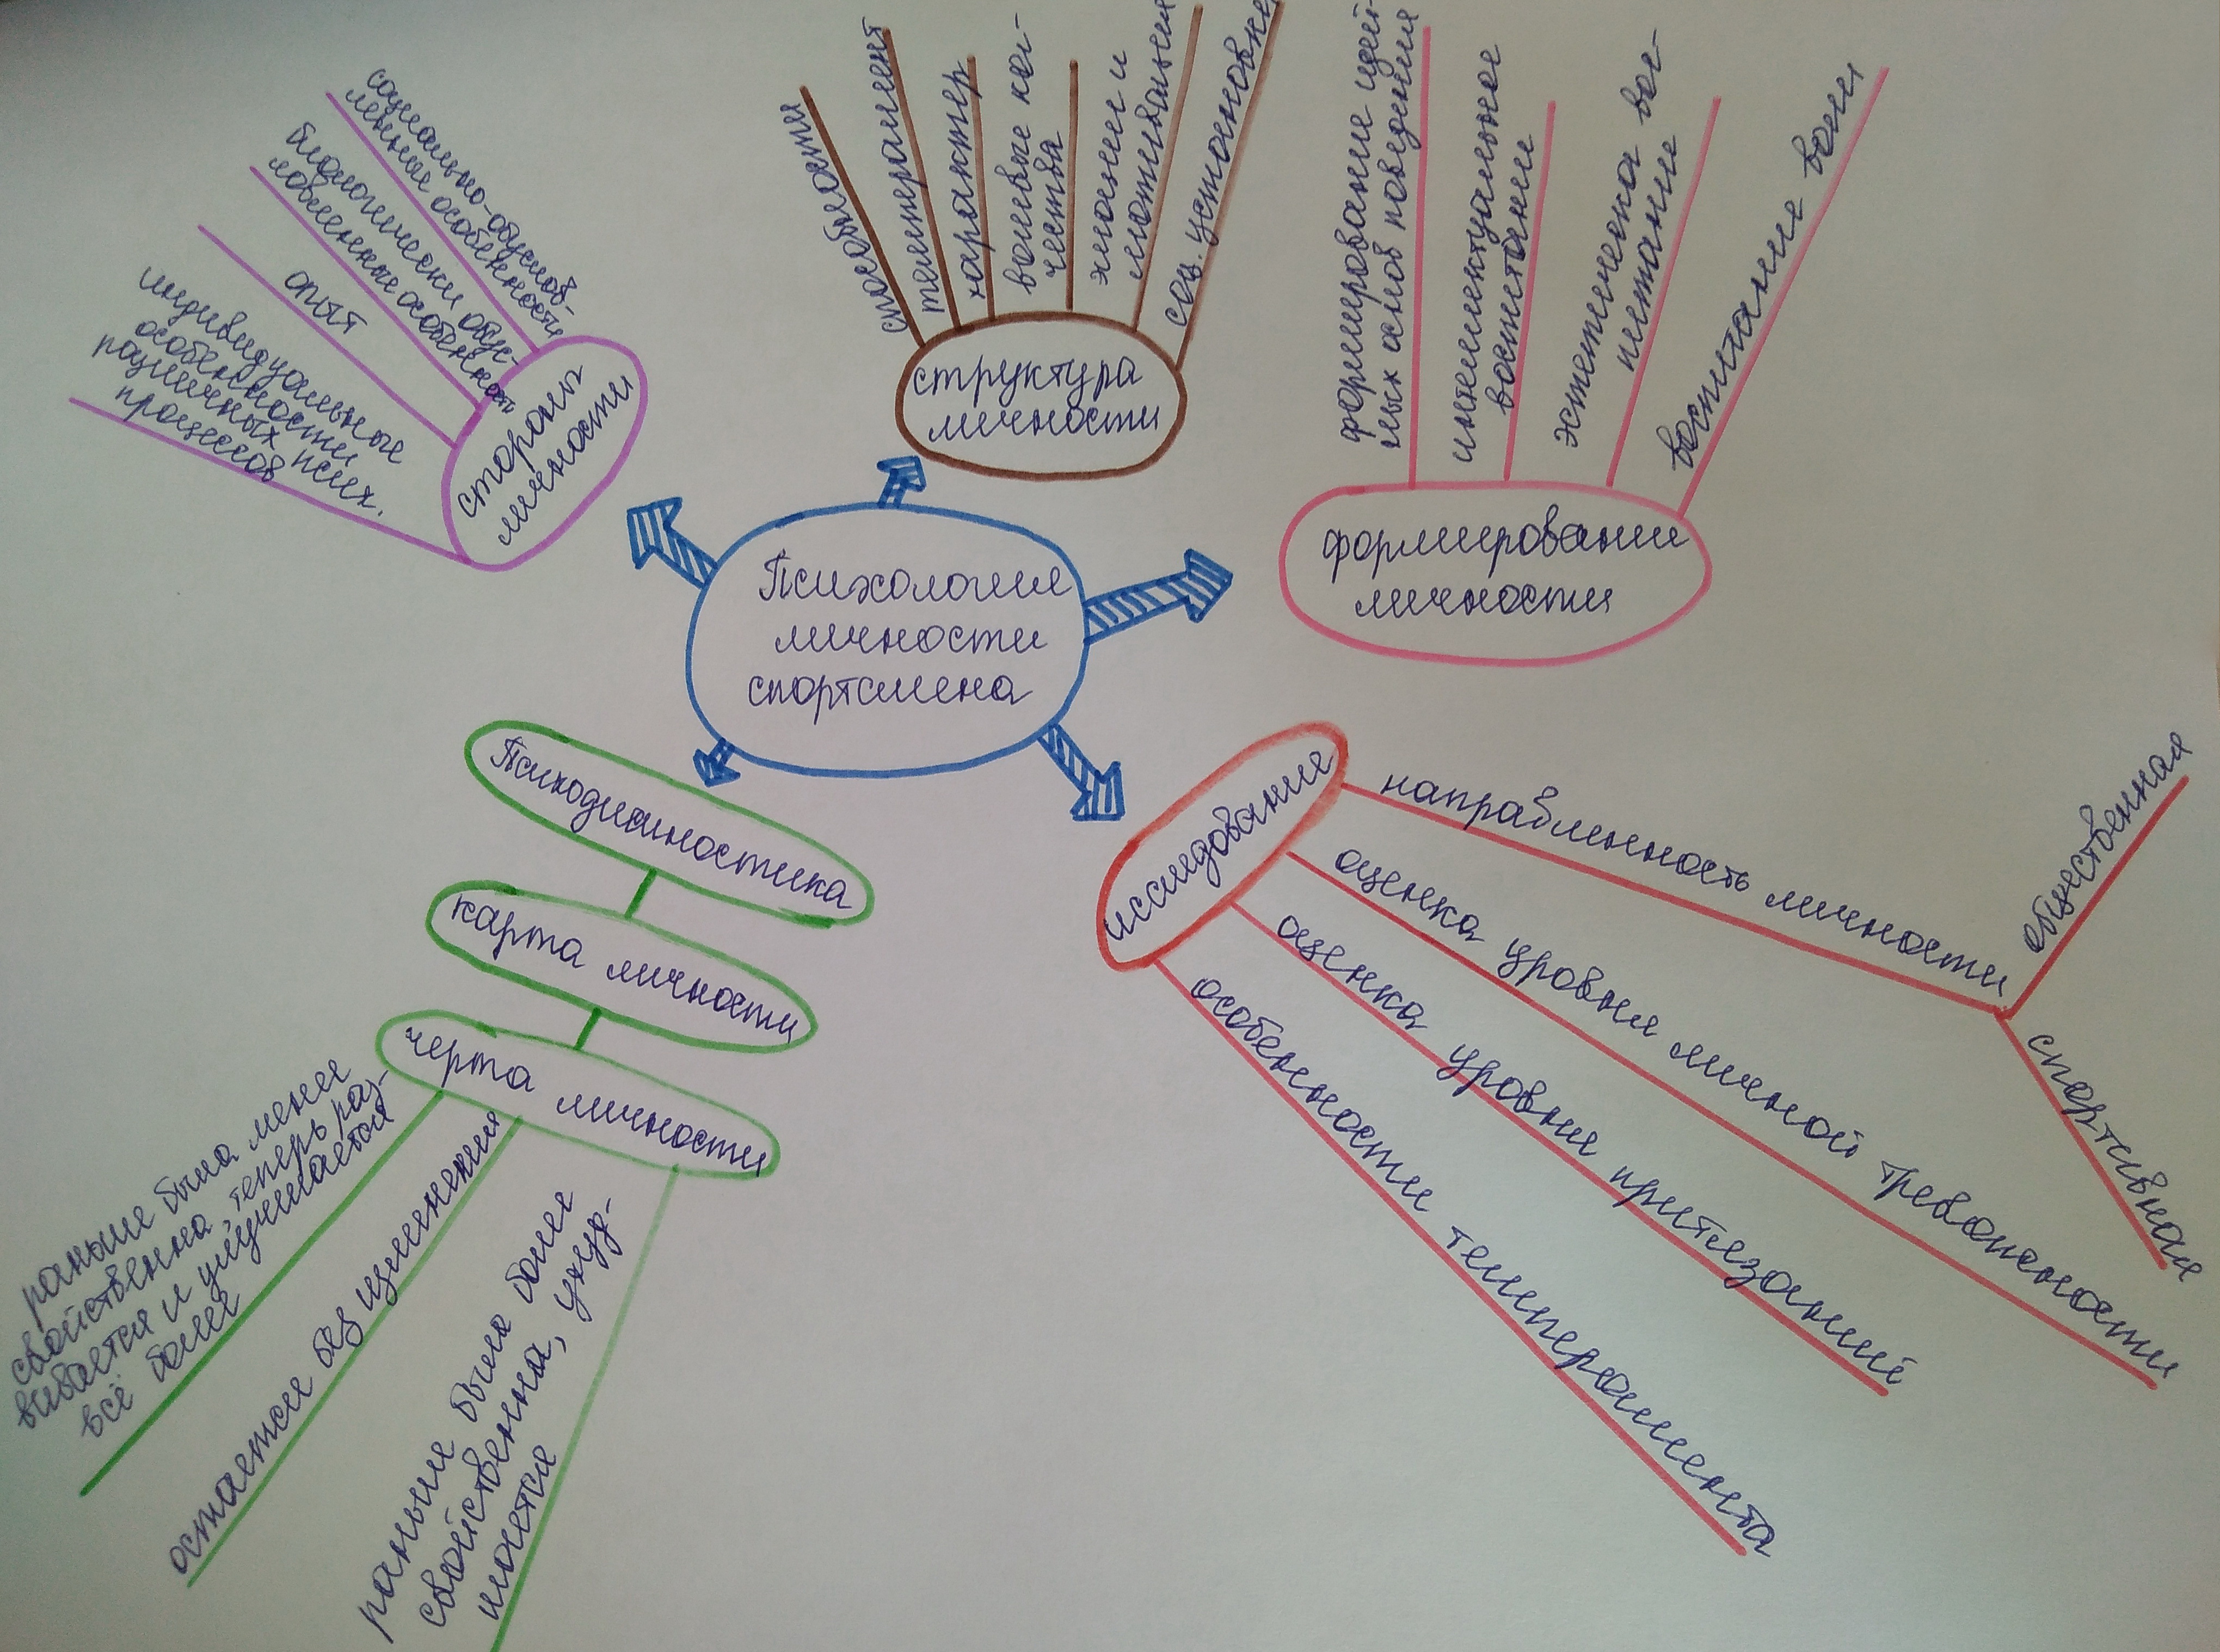 Психология
личности
спортсмена
стороны
личности
социально-обуслов-
ленные особенности
биологически обус-
ловленные особенност
опыт
индивидуальные
особенности
различных псих.
процессов
структура
личности
способности
темперамент
характер
волевые ка-
чества
эмоции и
мотивация
соц. установки
формирование
личности
формирование идей-
ных основ поведения
интеллектуальное
воспитание
эстетическа вос-
питание
воспитание воли
исследование
направленность личности
общественная
спортивная
оценка уровня личной тревожности
оценка уровня притязаний
особенности темперамента
Психодианостика
карта личности
черта личности
раньше была менее
свойственна, теперь раз-
вивается и улучшается
всё более
остаетже без изменения
раньше была более
свойственна, ухуд-
шается